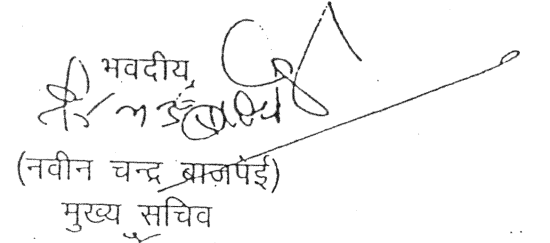 भवदीय,
(नवीन चन्द्र बाजपेई)
मुख्य सचिव